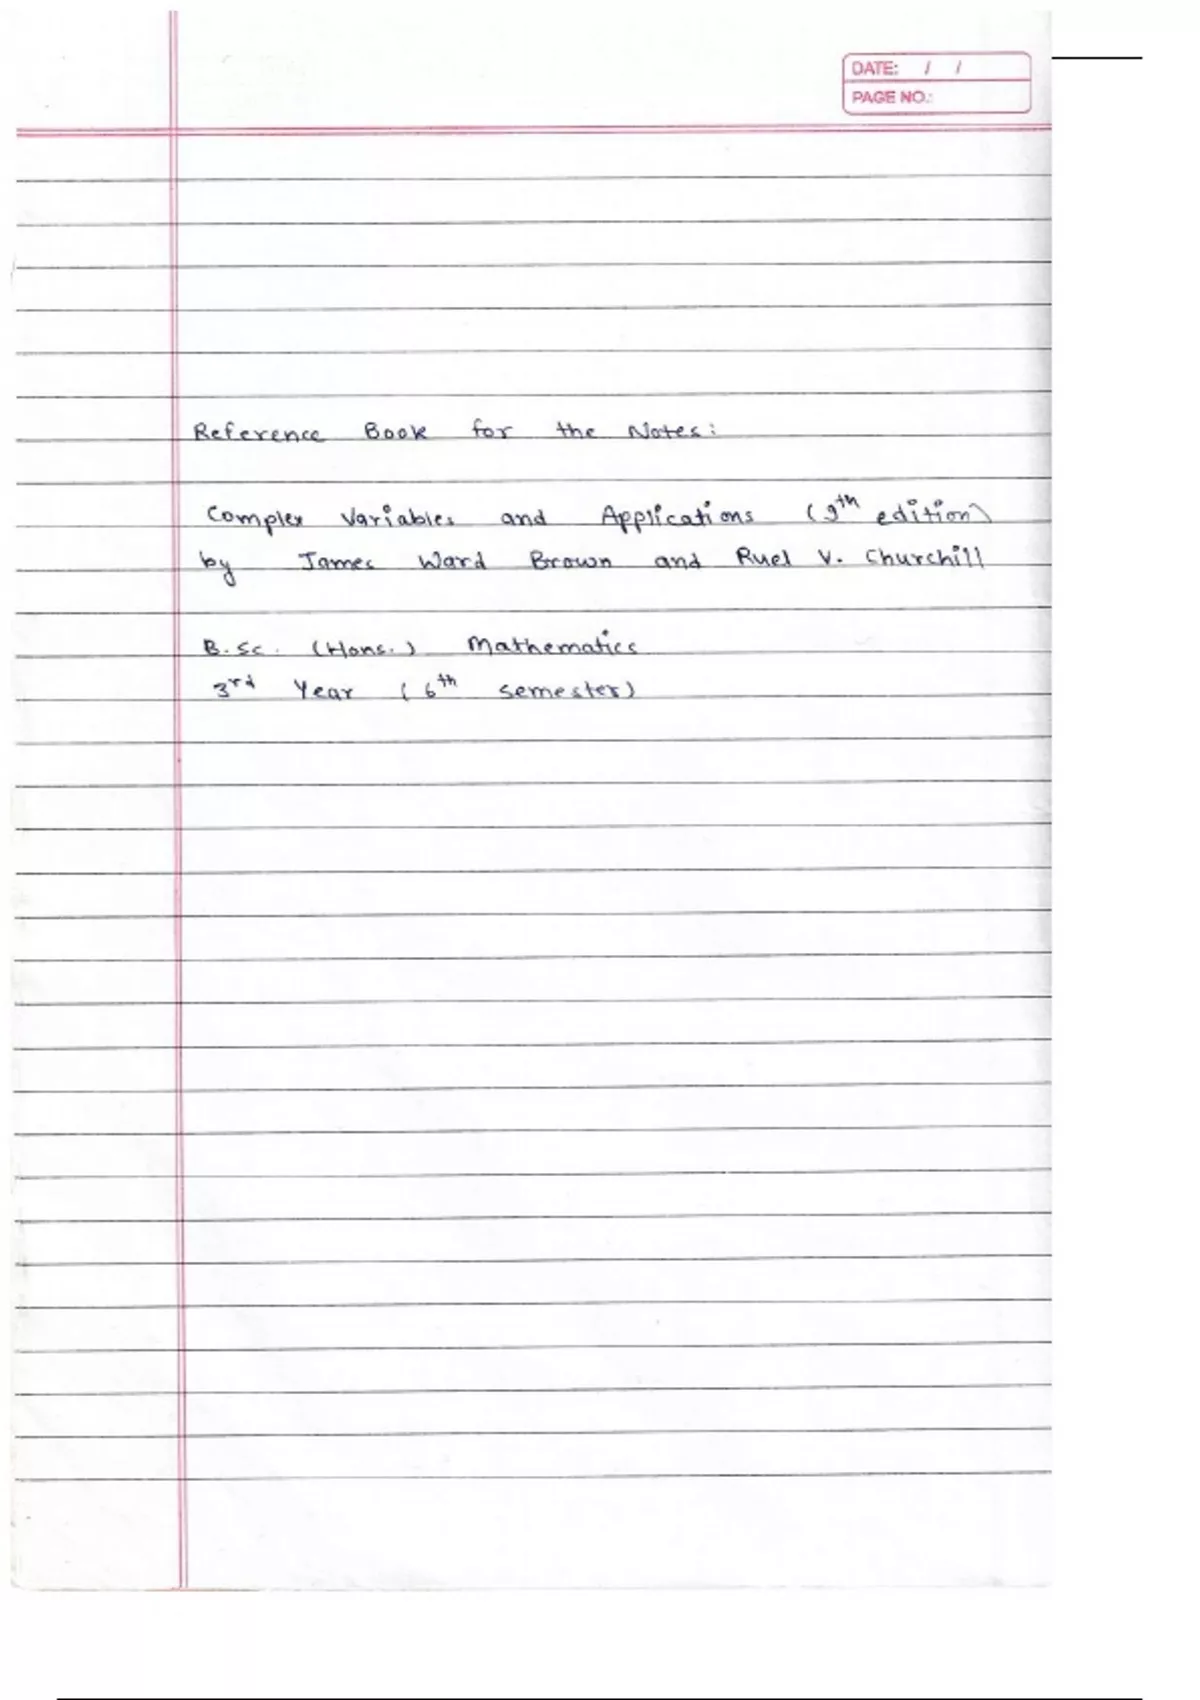 DATE: / /
PAGE NO.:
Reference Book for the Notes:
Complex Variables and Applications (9th edition)
by James Ward Brown and Ruel V. Churchill
B.Sc. (Hons.) Mathematics
3rd Year (6th semester)